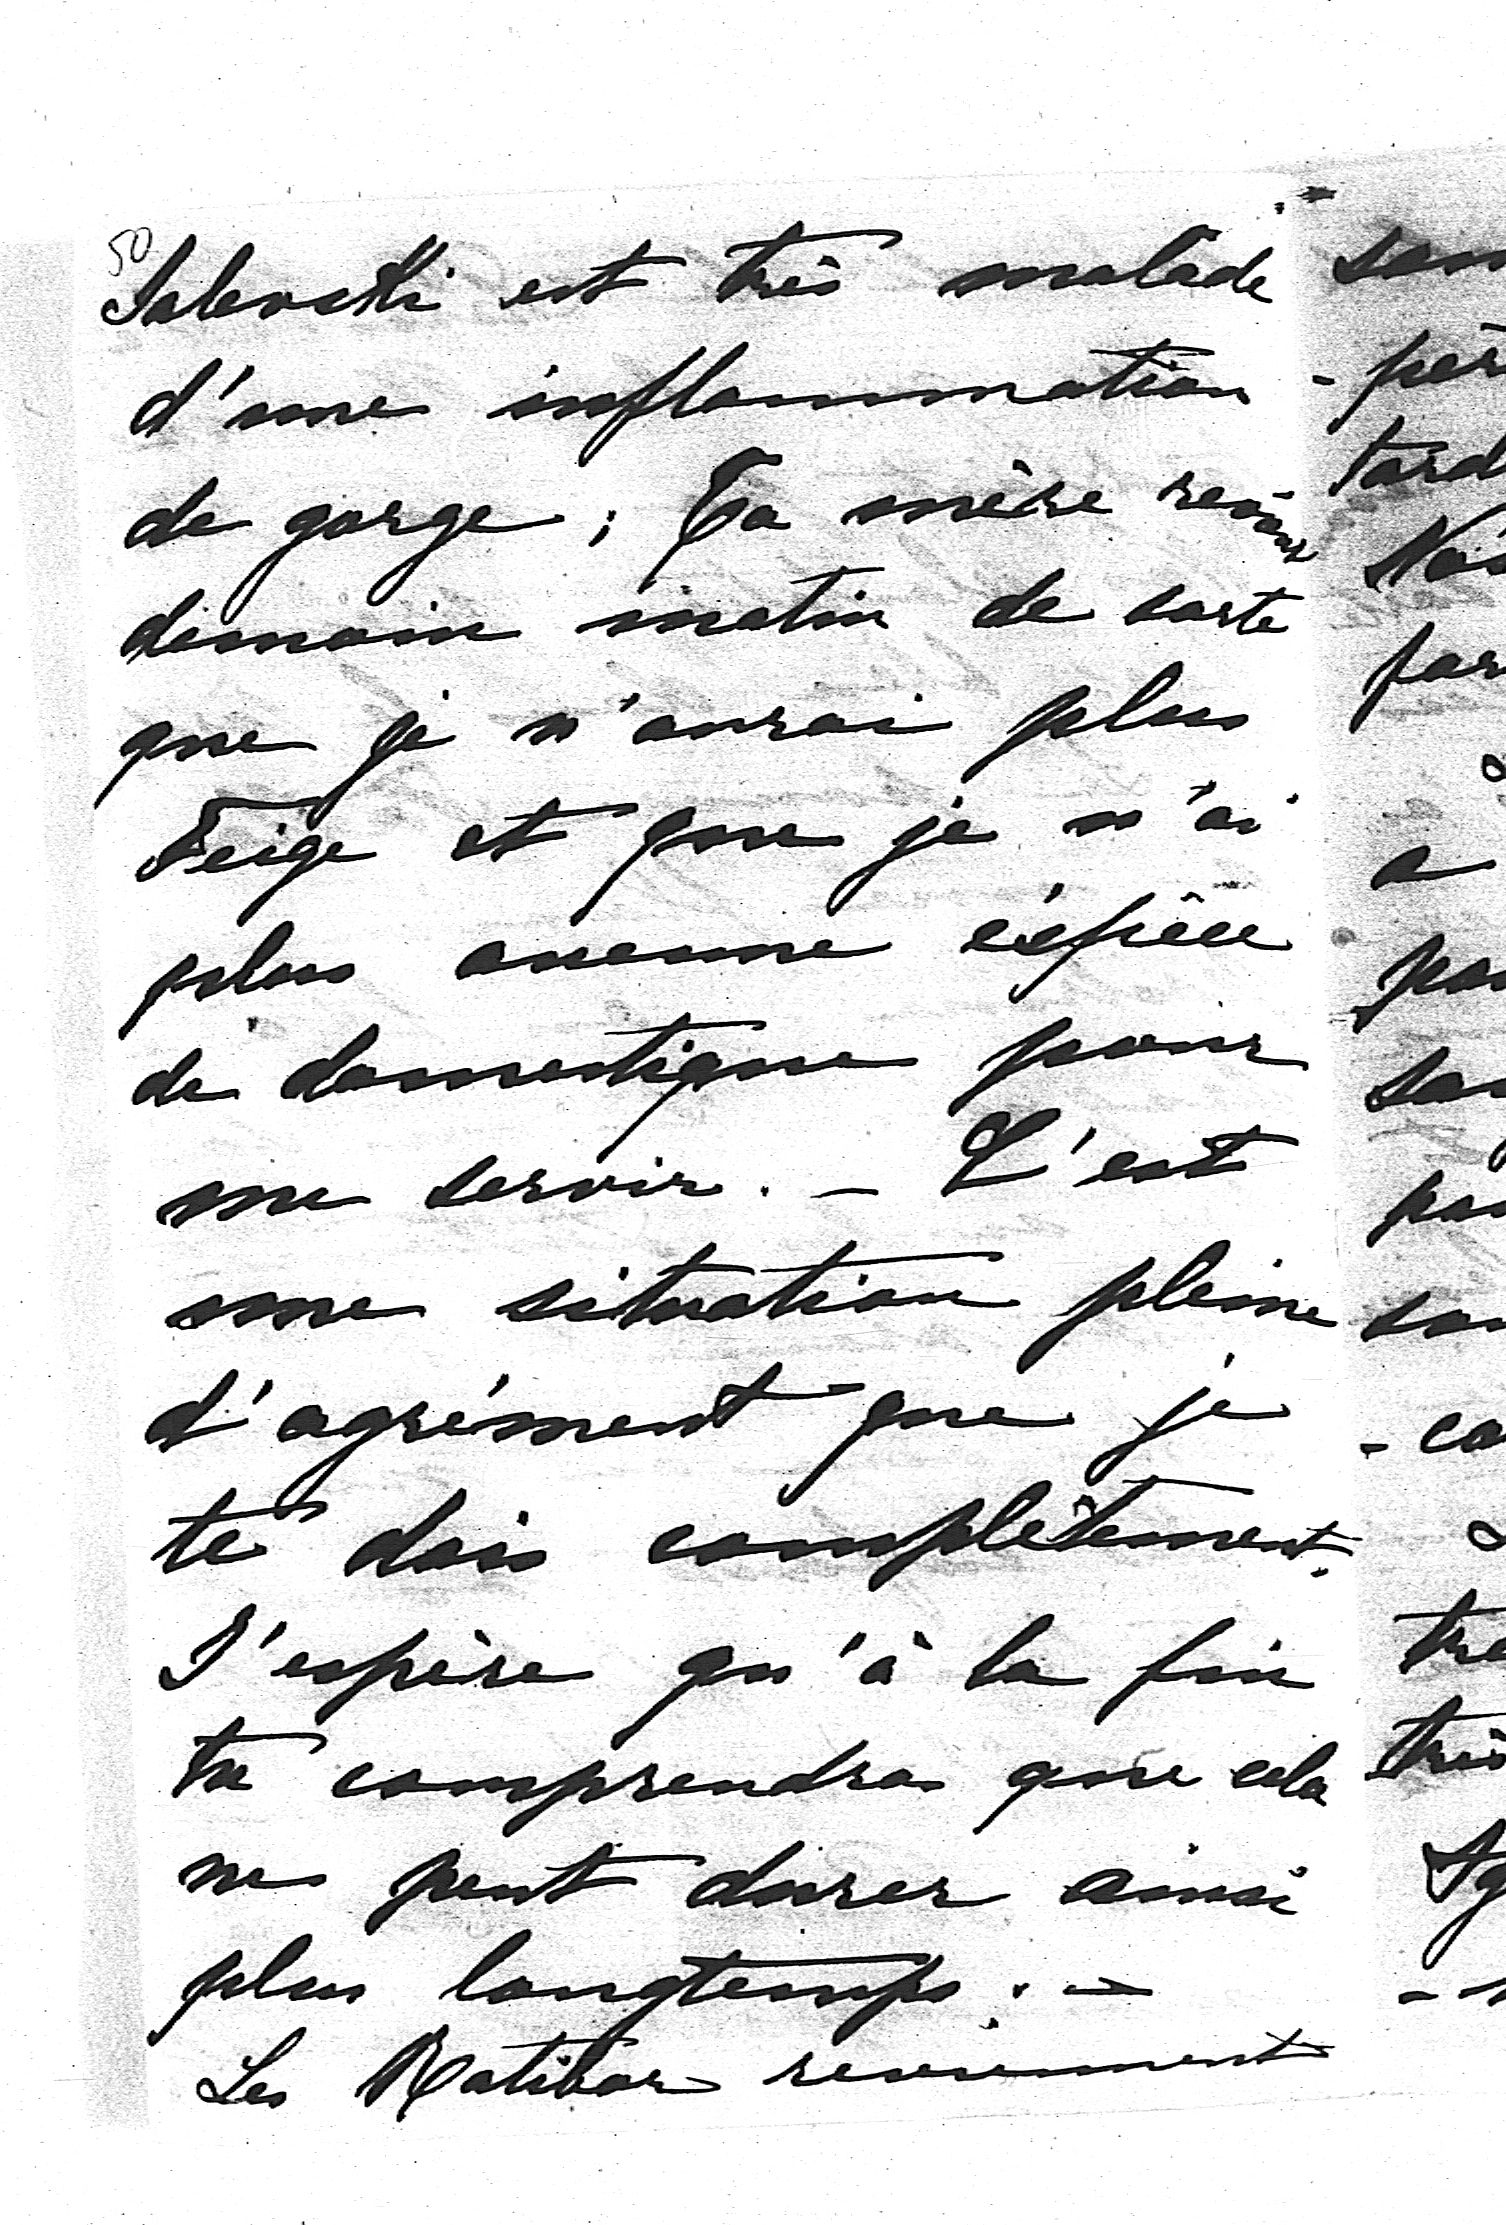 50
Salevski est très malade
d'une inflammation
de gorge; Ta mère revient
demain matin de sorte
que je n'aurai plus
Feige et que je n'ai
plus aucune éspèce
de domestique pour
me servir. – C'est
une situation pleine
d'agrément que je
te dois complètement.
J'espère qu'à la fin
tu comprendras que cela
ne peut durer ainsi
plus longtemps. –
Les Ratibor reviennent